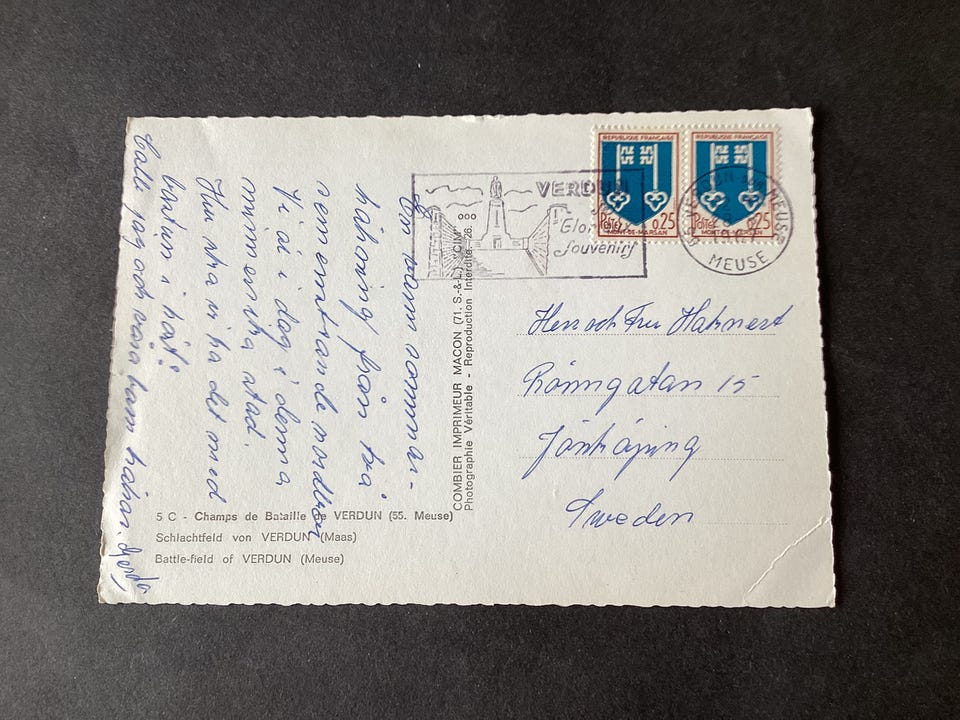 En varm sommar-
hälsning från två
semestrande nordbor
Vi är i dag i denna
minnesrika stad.
Hur stra ni ha det med
hästen i höst?
Calle jag och våra barn hälsar. Gerda
VERDUN
Souvenirs
REPUBLIQUE FRANÇAISE
Postes 0,25
MONT-DE-MARSAN
REPUBLIQUE FRANÇAISE
Postes 0,25
MONT-DE-MARSAN
MEUSE
MEUSE
COMBIER IMPRIMEUR MACON (71. S.-&-L.) "CIM"
Photographie Véritable - Reproduction Interdite
Herr och Fru Hahnert
Rönngatan 15
Jönköping
Sweden
5 C - Champs de Bataille de VERDUN (55. Meuse)
Schlachtfeld von VERDUN (Maas)
Battle-field of VERDUN (Meuse)